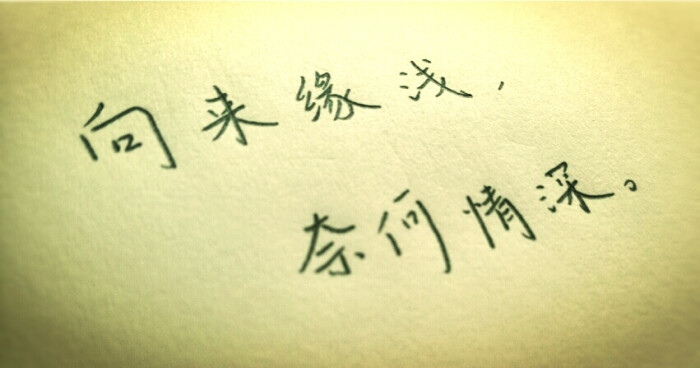 向来缘浅，
奈何情深。